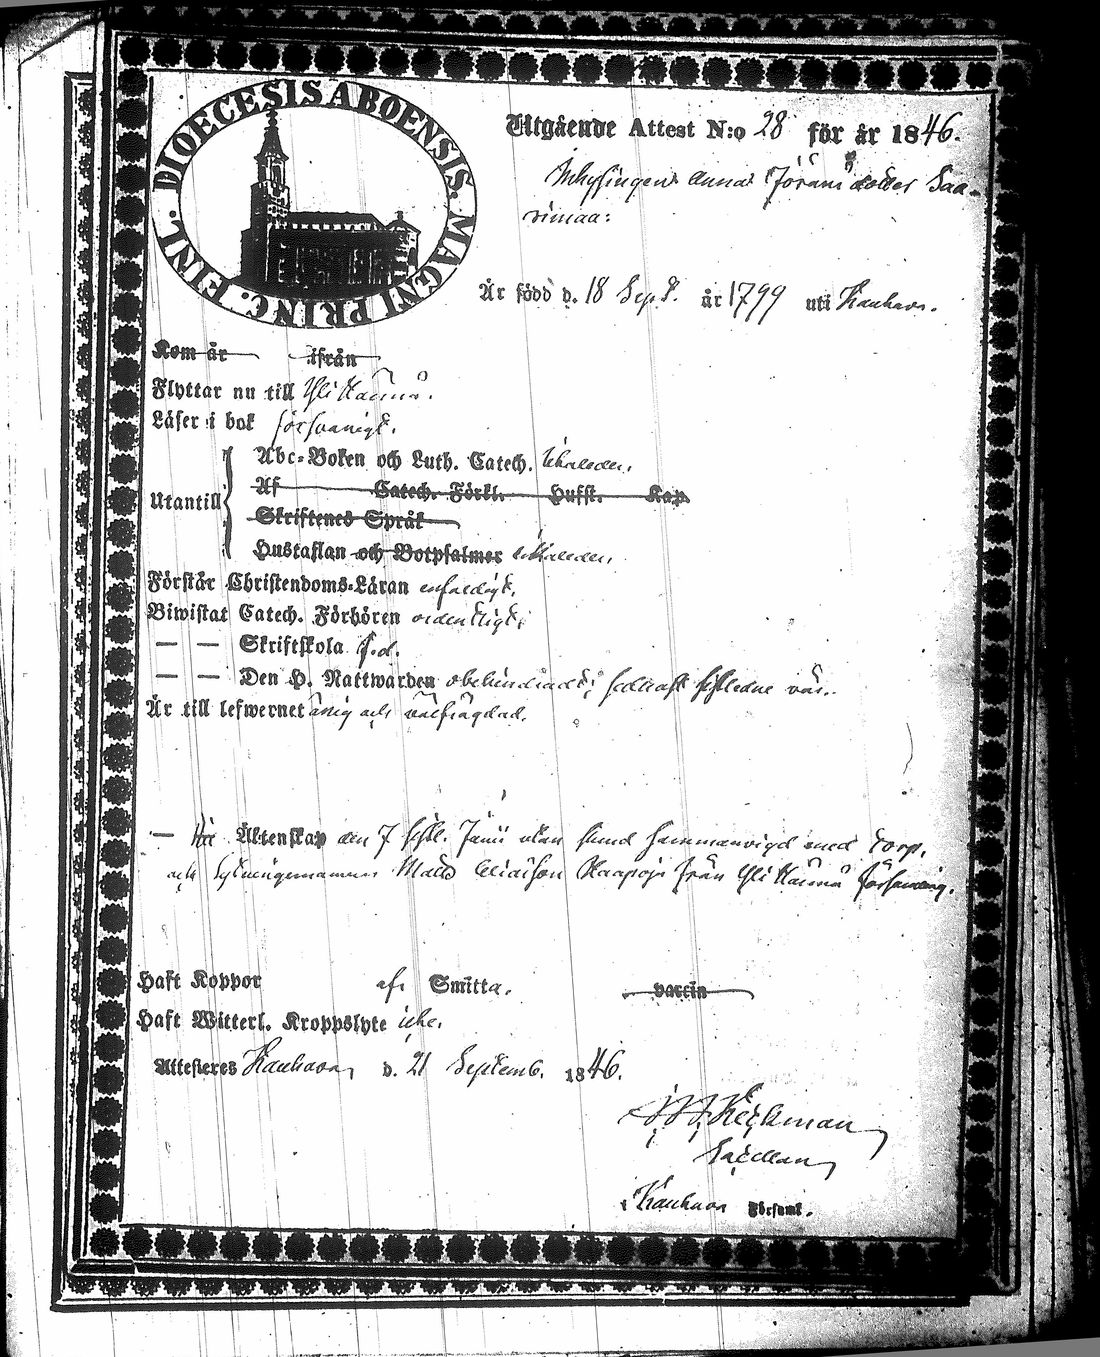 DIOECESIS ABOENSIS. MAGNI PRINC. FINL.
Utgående Attest N:o 28 för år 1846.
Inhysingen Anna Jöransdotter Saa-
rimaa:
Är född d. 18 Sept. år 1799 uti Kauhava.
Kom år ifrån
Flyttar nu till Yli Härmä.
Läser i bok försvarligt.
Abc-Boken och Luth. Catech. utaledes.
Utantill
Af Catech. Förkl. Hufst. Kap
Skriftenes Språk
Hustaflan och Botpsalmer
Förstår Christendoms-Läran enfaldigt.
Biwistat Catech. Förhören ordentligt;
— — Skriftskola d:o.
— — Den H. Nattwarden obehindradt; sednast
Är till lefwernet ärlig och välfrägdad.
— Äktenskap den 7 sistl. Junii utan sammanvigd med Torp.
och Sytningemannen Matts Eliaeson Haapoja från Yli Härmä församling.
Haft Koppor af Smitta. vaccin
Haft Witterl. Kroppslyte icke.
Attesteres Kauhava, d. 21 Septemb. 1846.
Heikman
Sacellan,
i Kauhava Församl.